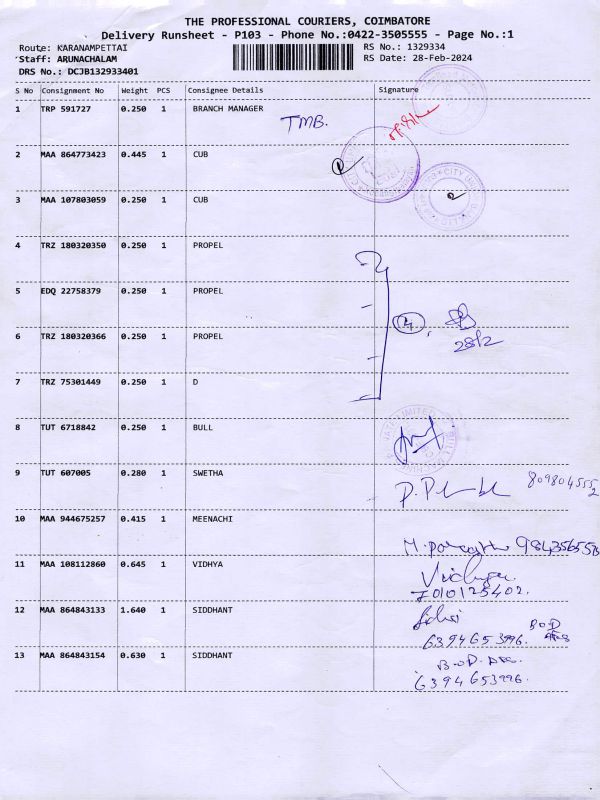 THE PROFESSIONAL COURIERS, COIMBATORE
Delivery Runsheet - P103 - Phone No.:0422-3505555 - Page No.:1
Route: KARANAMPETTAI RS No.: 1329334
Staff: ARUNACHALAM RS Date: 28-Feb-2024
DRS No.: DCJB132933401
S No Consignment No Weight PCS Consignee Details Signature
1 TRP 591727 0.250 1 BRANCH MANAGER
TMB.
2 MAA 864773423 0.445 1 CUB
3 MAA 107803059 0.250 1 CUB
4 TRZ 180320350 0.250 1 PROPEL
5 EDQ 22758379 0.250 1 PROPEL
4
6 TRZ 180320366 0.250 1 PROPEL
28/2
7 TRZ 75301449 0.250 1 D
8 TUT 6718842 0.250 1 BULL
9 TUT 607005 0.280 1 SWETHA
10 MAA 944675257 0.415 1 MEENACHI
11 MAA 108112860 0.645 1 VIDHYA
Vidhya
7010125402.
12 MAA 864843133 1.640 1 SIDDHANT
6394653996.
13 MAA 864843154 0.630 1 SIDDHANT
6394653996.